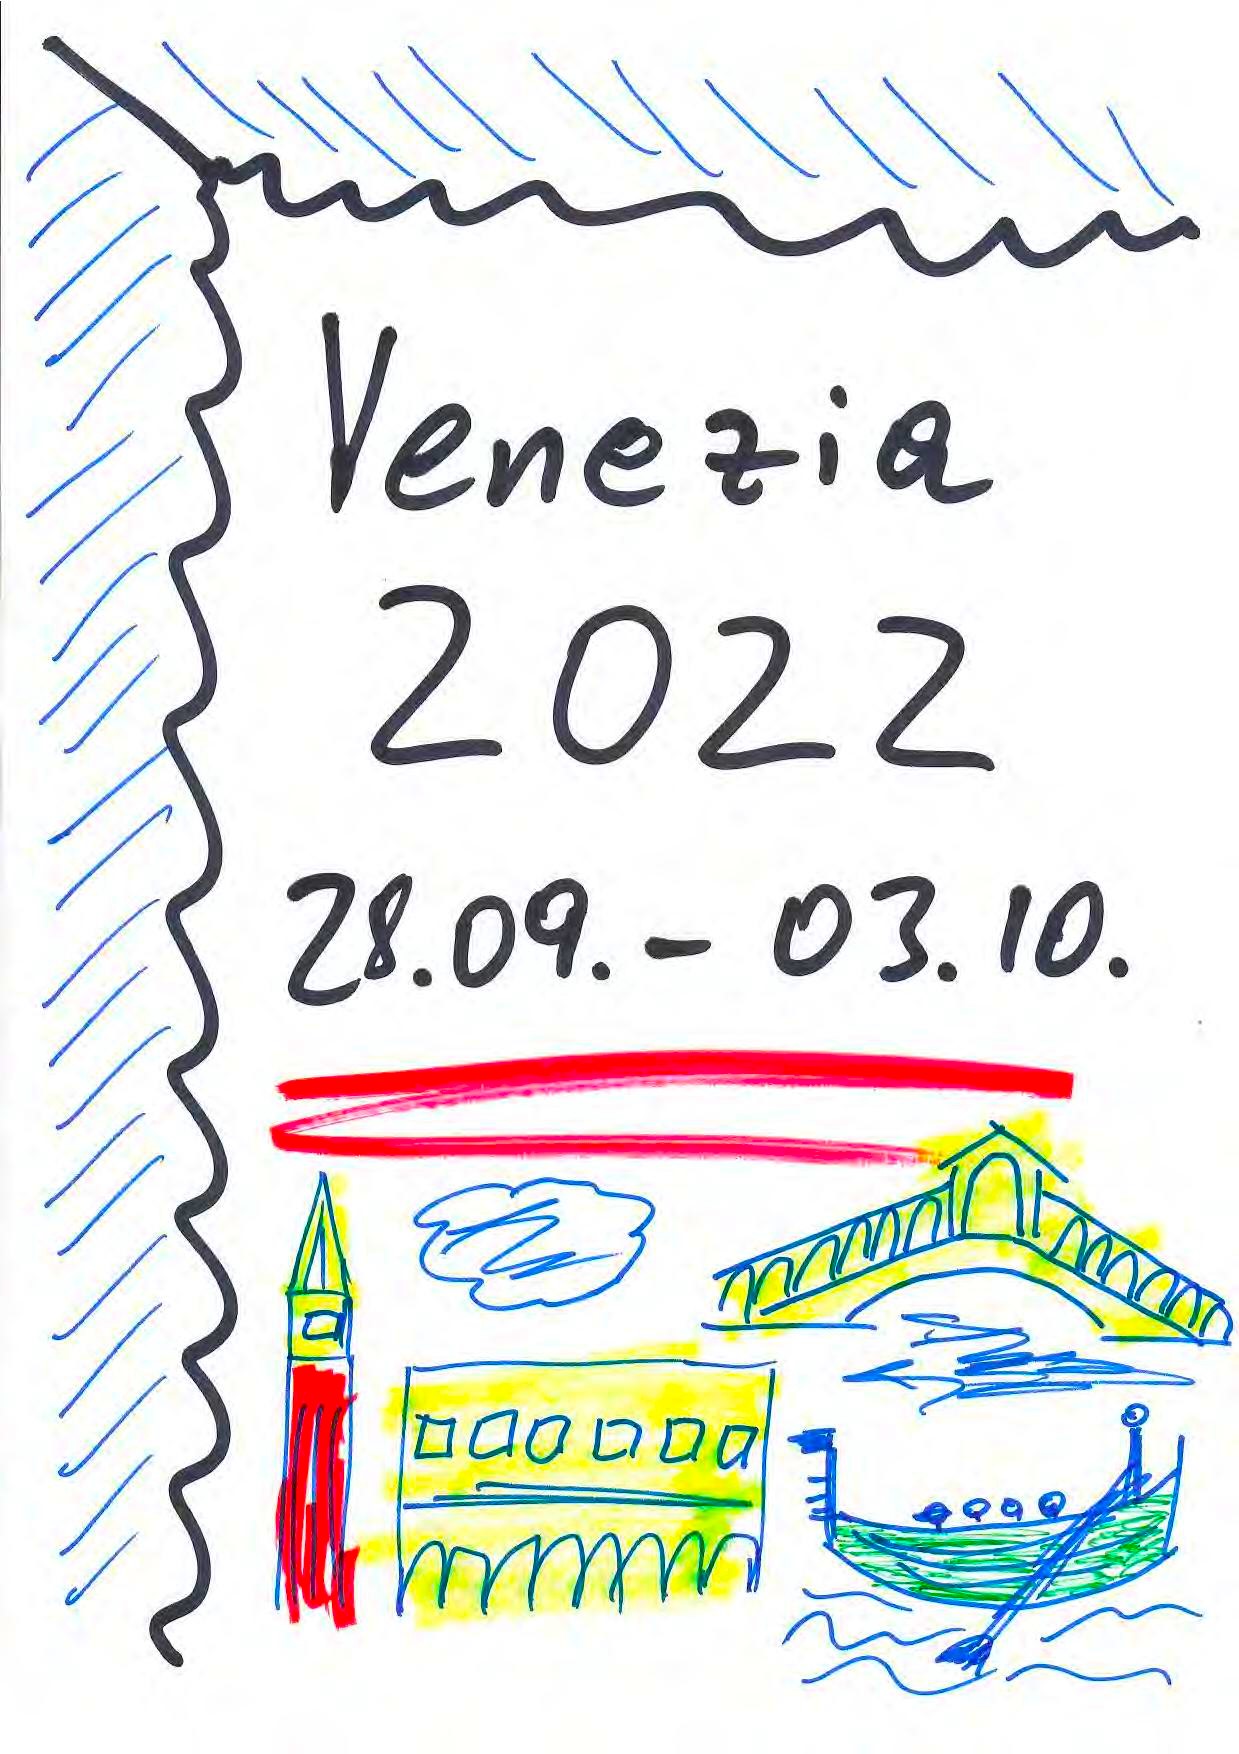 Venezia
2022
28.09.- 03.10.